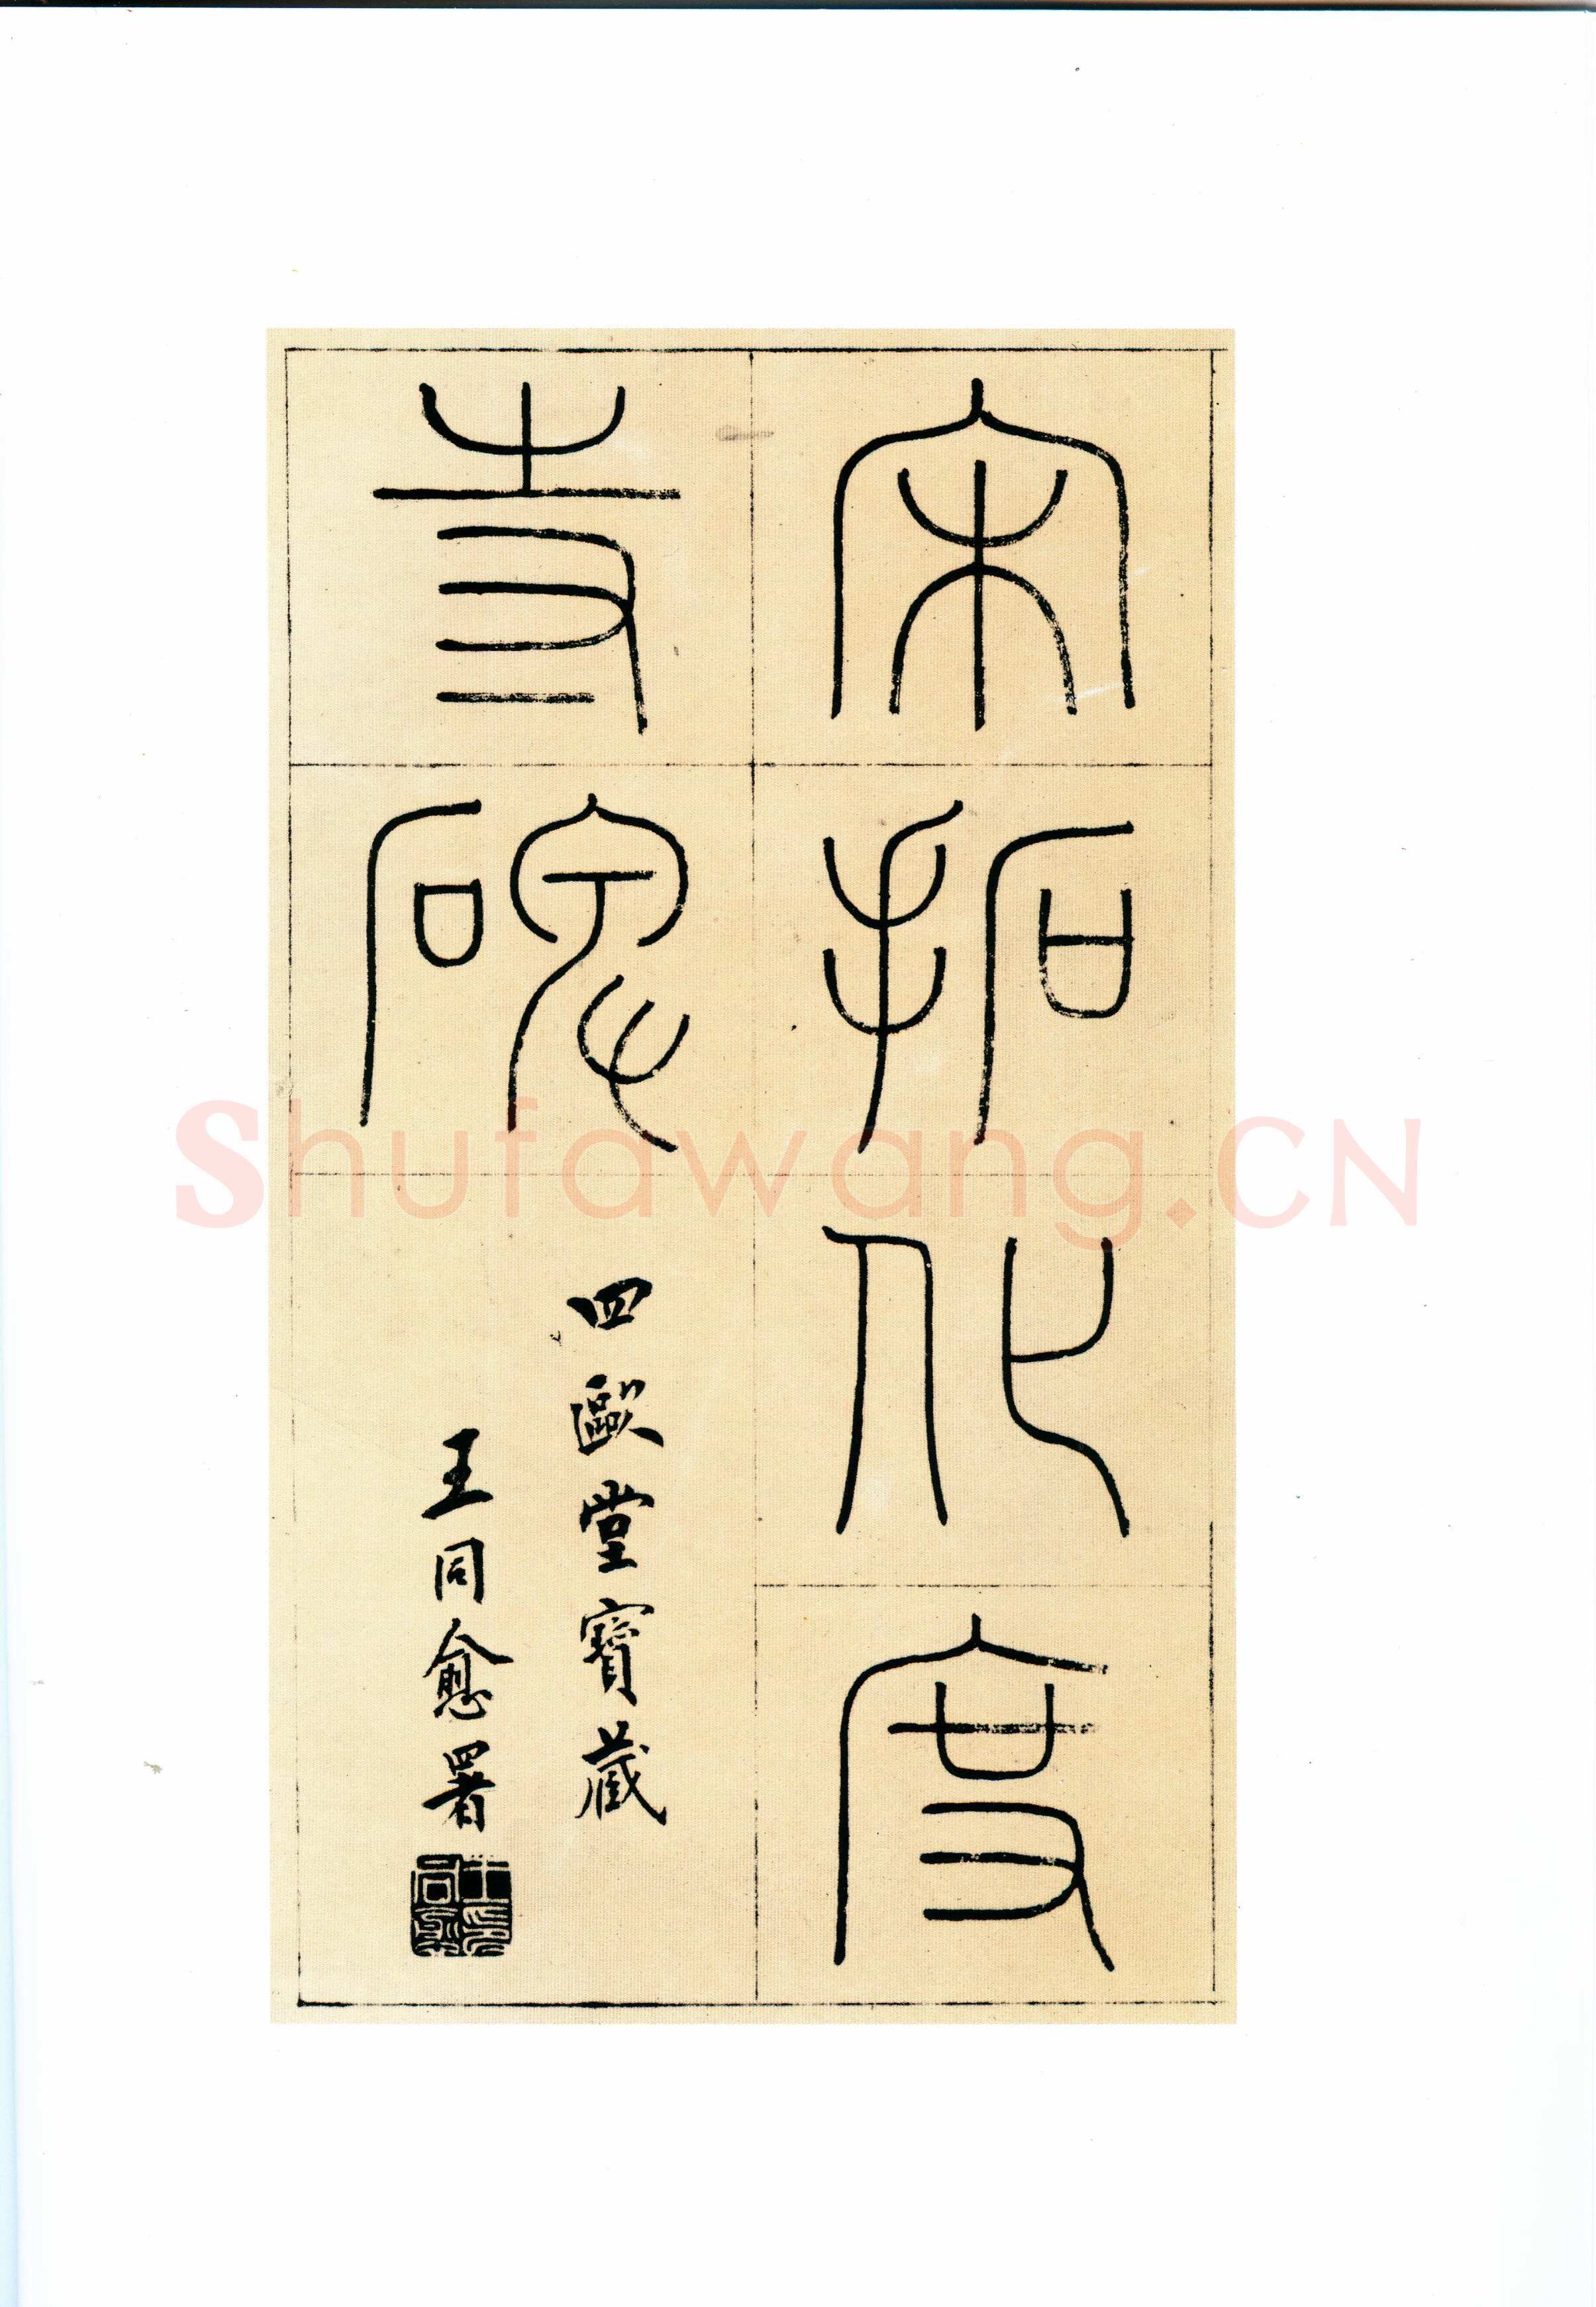 宋拓化度
寺碑
四歐堂寶藏
王同愈署
王印同愈
Shufawang.CN